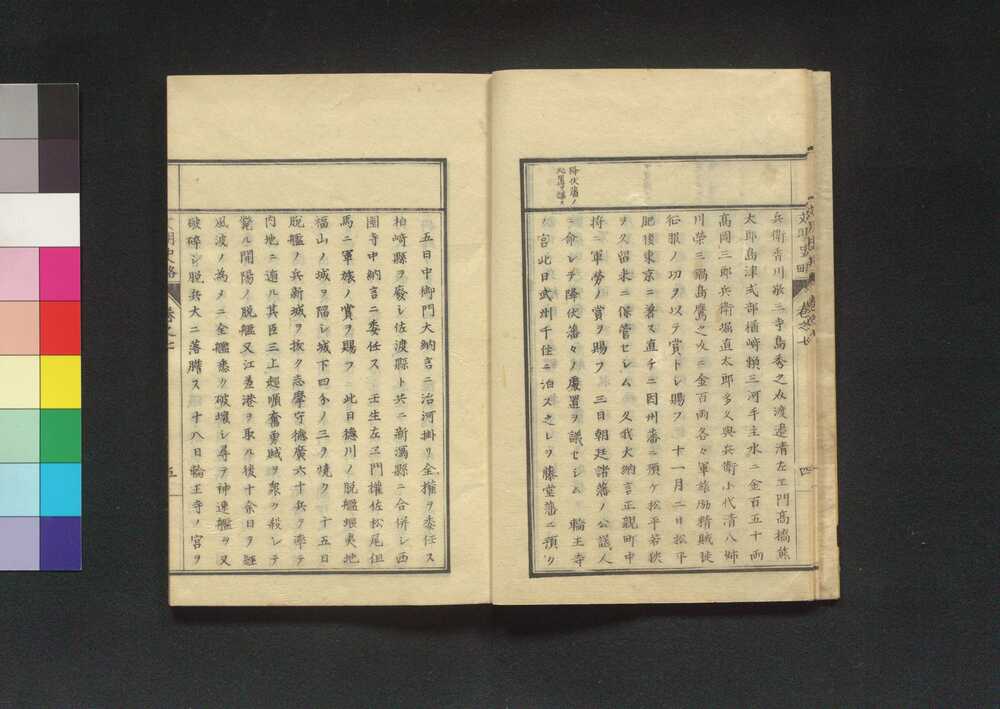 兵衛香川敬三寺島秀之〻渡邉清左エ門髙橋熊
太郎島津式部樋崎頼三河千主水ニ金百五十両
髙岡三郎兵衛堀直太郎多久與兵衛小代清八姉
川榮三福島鷹之〻ニ金百両各々軍旅励精賊徒
征服ノ功ヲ以テ賞トシ賜フ 十一月二日松平
肥後東京ニ著ス直チニ因州藩ニ預ケ松平若狭
ヲ久留米ニ保管セシム 久我大納言正親町中
将ニ軍勞ノ賞ヲ賜フ 三日朝廷諸藩ノ公議人
ニ命シテ降伏藩々ノ處置ヲ議セシム 輪王寺
ノ宮此日武州千住ニ泊ス之レヲ藤堂藩ニ預ク
降伏藩ノ
処置ヲ議ス
五日中御門大納言ニ治河掛リ全權ヲ委任ス
柏崎縣ヲ廢シ佐渡縣ト共ニ新潟縣ニ合併シ西
園寺中納言ニ委任ス 壬生左エ門權佐松尾但
馬ニ軍旅ノ賞ヲ賜フ 此日德川ノ脱艦蝦夷地
福山ノ城ヲ陥シ城下四分ノ三ヲ燒ク 十五日
脱艦ノ兵新城ヲ抜ク志摩守德廣六十兵ヲ率テ
内地ニ遁ル其臣三上超順奮勇賊ヲ衆ク殺シテ
斃ル開陽ノ脱艦又江差港ヲ取ル後十余日ヲ經
風波ノ為メニ全艦悉ク破壊シ尋テ神速艦モ又
破碎シ脱兵大ニ落膽ス 十八日輪王寺ノ宮ヲ
卷之七
四
五